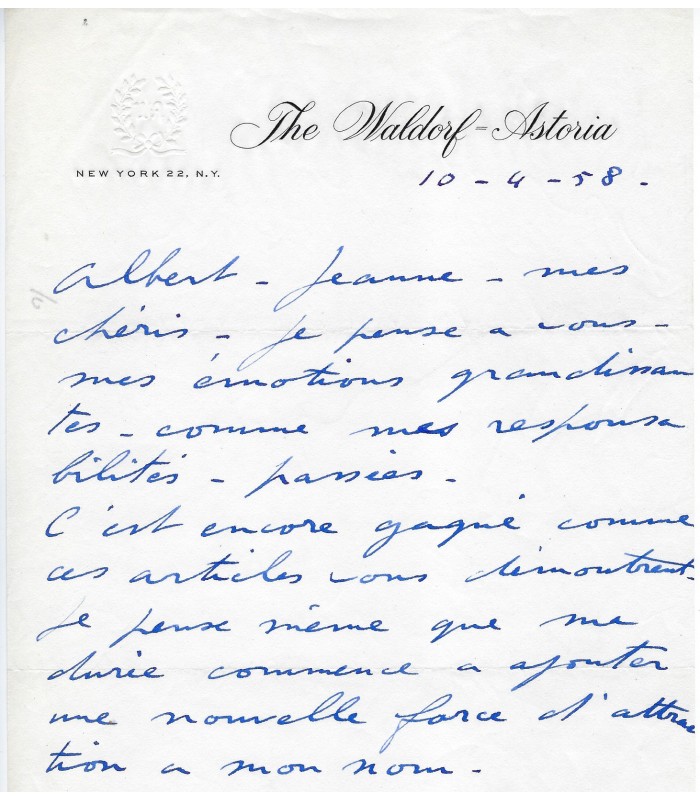 The Waldorf=Astoria
NEW YORK 22, N.Y.
10 - 4 - 58 -
Albert - Jeanne - mes
chéris - Je pense a vous -
mes émotions grandissan
tes - comme mes responsa
bilités - passées -
C'est encore gagné comme
ces articles vous démontrent -
Je pense même que ma
durée commence a ajouter
une nouvelle force d'attrac
tion a mon nom -